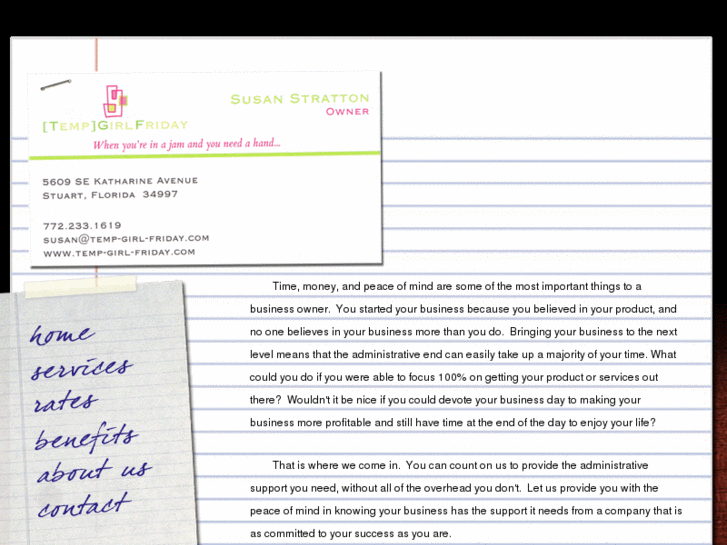 SUSAN STRATTON
OWNER
[TEMP]GIRLFRIDAY
When you're in a jam and you need a hand...
5609 SE KATHARINE AVENUE
STUART, FLORIDA 34997
772.233.1619
SUSAN@TEMP-GIRL-FRIDAY.COM
WWW.TEMP-GIRL-FRIDAY.COM
home
services
rates
benefits
about us
contact
Time, money, and peace of mind are some of the most important things to a
business owner. You started your business because you believed in your product, and
no one believes in your business more than you do. Bringing your business to the next
level means that the administrative end can easily take up a majority of your time. What
could you do if you were able to focus 100% on getting your product or services out
there? Wouldn't it be nice if you could devote your business day to making your
business more profitable and still have time at the end of the day to enjoy your life?
That is where we come in. You can count on us to provide the administrative
support you need, without all of the overhead you don't. Let us provide you with the
peace of mind in knowing your business has the support it needs from a company that is
as committed to your success as you are.